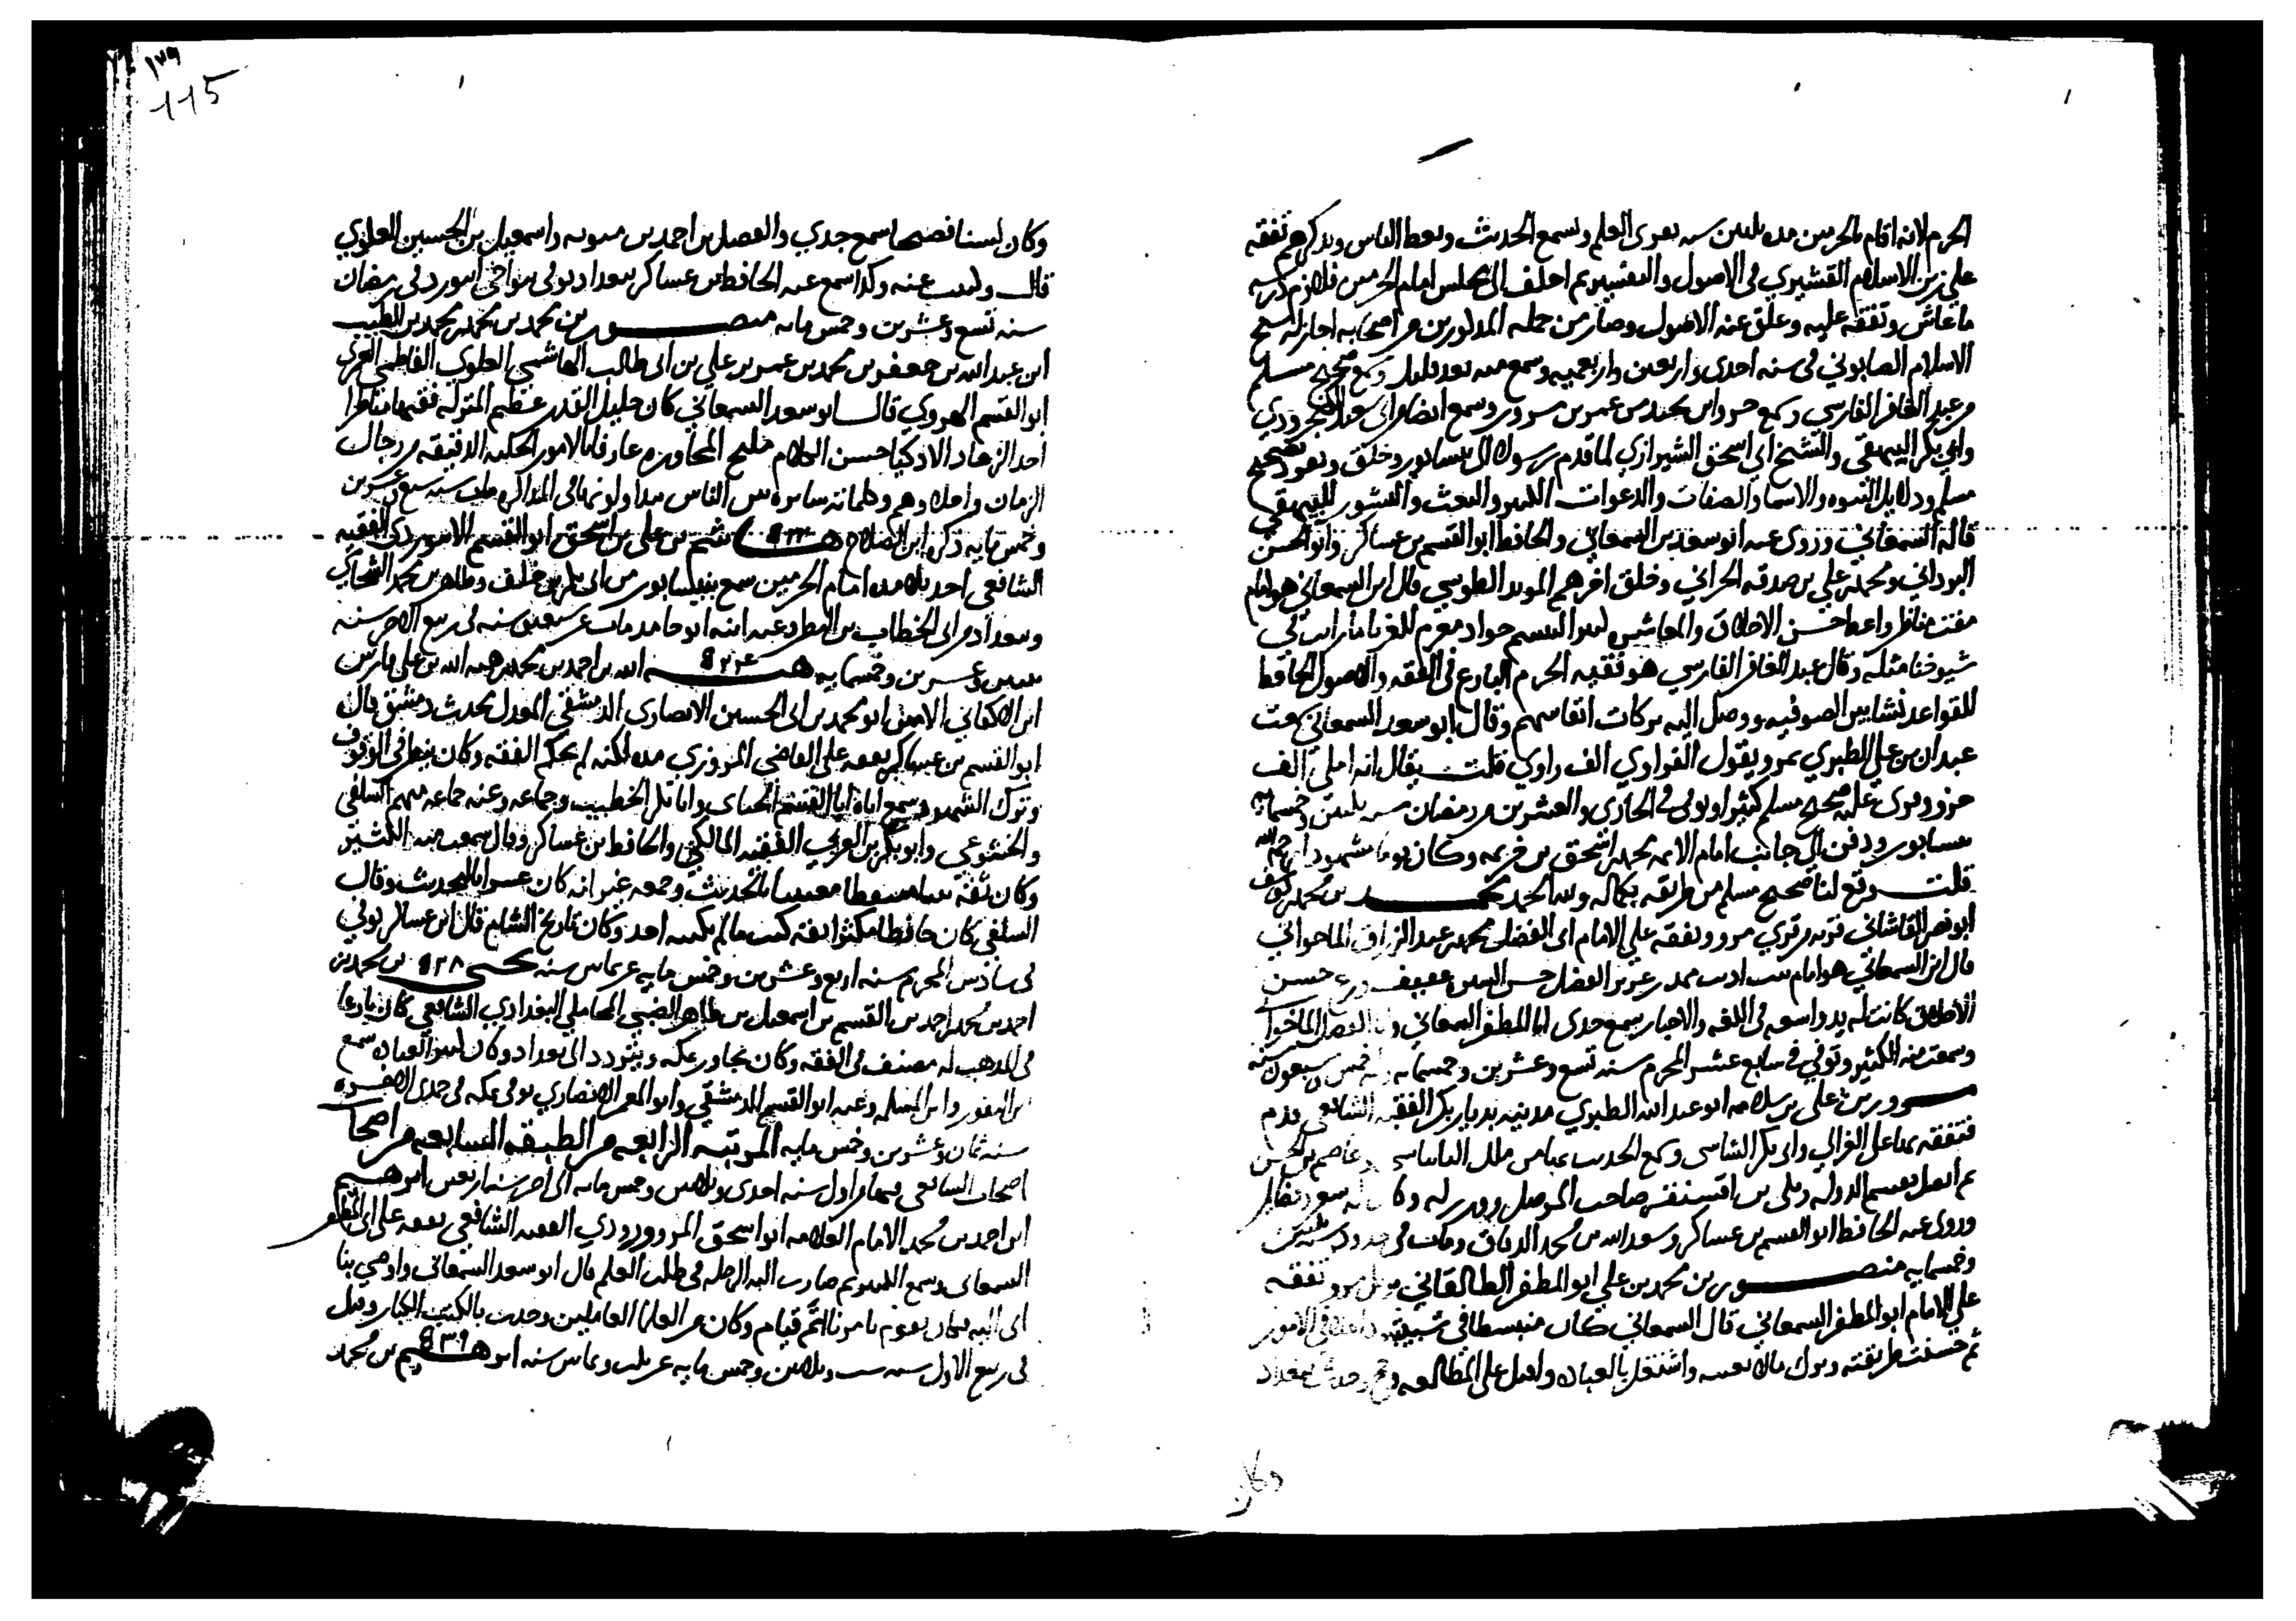 الحرم لانه اقام بالحرمين مدة يقرى العلم ويسمع الحديث ويعظ الناس ويذكرهم تفقه
على زين الاسلام القشيري في الاصول والتفسير ثم اختلف الى مجلس امام الحرمين فلازم درسه
ما عاش وتفقه عليه وعلق عنه الاصول وصار من جملة المذكورين من اصحابه اجاز له شيخ
الاسلام الصابوني في سنه احدى واربعين واربعميه وسمع منه بعد ذلك وسمع صحيح مسلم
من عبد الغافر الفارسي وسمع جزو ابن نجيد من عمر بن مسرور وسمع ايضا من ابي سعد الكنجرودي
وابي بكر البيهقي والشيخ ابي اسحق الشيرازي لما قدم رسولا الى نيسابور وخلق وتفرد بصحيح
مسلم ودلايل النبوه والاسما والصفات والدعوات الكبير والبعث والنشور للبيهقي
قاله السمعاني وروى عنه ابو سعد بن السمعاني والحافظ ابو القسم بن عساكر وابو الحسن
ومحمد بن علي بن صدقه الحراني وخلق اخرهم المويد الطوسي قال ابن السمعاني هو امام
مفت مناظر واعظ حسن الاخلاق والمعاشره كثير التبسم جواد مكرم للغربا ما رايت في
شيوخنا مثله وقال عبد الغافر الفارسي هو فقيه الحرم البارع في الفقه والاصول الحافظ
للقواعد نشا بين الصوفيه ووصل اليه بركات انفاسهم وقال ابو سعد السمعاني سمعت
عبدان بن علي الطبري بمرو يقول الفراوي الف راوي قلت يقال انه املى الف
صحيح مسلم كثيرا وتوفي في الحادي والعشرين من رمضان سنه ثلثين وخمسمايه
بنيسابور ودفن الى جانب امام الايمه محمد بن اسحق بن خزيمه وكان يوما مشهودا رحمه الله
قلت وقع لنا صحيح مسلم من طريقه بكماله ولله الحمد محمد بن محمد بن يوسف
ابو نصر القاشاني قريه من قري مرو وتفقه علي الامام ابي الفضل محمد بن عبد الرزاق الماخواني
قال ابن السمعاني هو امام ثبت اديب حسن عفيف ورع حسن
الاخلاق كانت له يد واسعه في اللغه والاخبار سمع جدي ابا المظفر السمعاني وابا الفضل الماخواني
وسمعت منه الكثير وتوفي في سابع عشر المحرم سنه تسع وعشرين وخمسمايه وله خمس وسبعون سنه
بن علي بن سلامه ابو عبد الله الطبري مدينه بديار بكر الفقيه الشافعي قدم
فتفقه بها على الغزالي وابي بكر الشاسي وسمع الحديث وعاصم بن الحسن
ثم اتصل زنكي بن اقسنقر صاحب الموصل ووزر له وكان له شعر
وروى عنه الحافظ ابو القسم بن عساكر وسعد الله بن محمد الدقاق ومات في حدود سنه ثلثين
وخمسمايه منصور بن محمد بن علي ابو المظفر الطالقاني نزيل مرو تفقه
علي الامام ابو المظفر السمعاني قال السمعاني كان منبسطا في شبيبته داخلا في الامور
ثم حسنت طريقته وترك ما كان فيه واشتغل بالعباده واقبل على المطالعه وحج وحدث ببغداد
وكان
١٣٩
115
وكان لسنا فصيحا سمع جدي والفضل بن احمد بن متويه واسمعيل بن الحسين العلوي
قال وكتبت عنه وكذا سمع عنه الحافظ بن عساكر ببغداد توفي بنواحي ابيورد في رمضان
سنه تسع وعشرين وخمس مايه منصور بن محمد بن محمد بن محمد بن الطيب
ابن عبد الله بن جعفر بن محمد بن عمر بن علي بن ابى طالب الهاشمي العلوي الفاطمي العمري
ابو القسم الهروي قال ابو سعد السمعاني كان جليل القدر عظيم المنزله فقيها مناظرا
احد الزهاد الاذكيا حسن الكلام مليح المحاوره عارفا بالامور الحكميه الدقيقه من رجال
الزمان وكلماته سايره بين الناس مات سنه سبع وعشرين
وخمس مايه ذكره ابن الصلاح هاشم بن علي بن اسحق ابو القسم الابيوردي الفقيه
الشافعي احد تلامذه امام الحرمين سمع بنيسابور من ابى بكر بن خلف وطاهر بن محمد الشحامي
وببغداد من ابى الخطاب بن البطر وعنه ابنه ابو حامد مات عن سبعين سنه في ربيع الاخر سنه
وعشرين وخمسمايه ٥٢٤ هبه الله بن احمد بن محمد بن هبه الله بن علي بن فارس
ابن الاكفاني الامين ابو محمد بن ابى الحسين الانصاري الدمشقي المعدل محدث دمشق قال
ابو القسم بن عساكر تفقه على القاضي المروزي مده لكنه لم يحكم الفقه وكان ينظر في الوقوف
وتزكية الشهود وسمع اباه وابا القسم الحنائي وابا بكر الخطيب وجماعه وعنه جماعه منهم السلفي
والخشوعي وابو بكر بن العربي الفقيه المالكي والحافظ بن عساكر وقال سمعت منه الكثير
وكان ثقه ثبتا متيقظا معنيا بالحديث وجمعه غير انه كان عسرا بالتحديث وقال
السلفي كان حافظا مكثرا ثقه كتب ما لم يكتبه احد وكان تاريخ الشام قال ابن عساكر توفي
في سادس المحرم سنه اربع وعشرين وخمس مايه عن ثمانين سنه يحيى ٥٢٨ بن محمد بن
احمد بن محمد بن احمد بن القسم بن اسمعيل بن طاهر الضبي المحاملي البغدادي الشافعي كان بارعا
في المذهب له مصنف في الفقه وكان يجاور بمكه ويتردد الى بغداد وكان كثير العباده سمع
ابن النقور وابن المسلمه وعنه ابو القسم الدمشقي وابو المعمر الانصاري توفي بمكه في جمدى الاخره
سنه ثمان وعشرين وخمس مايه المرتبه الرابعه من الطبقه السابعه من اصحاب
اصحاب الشافعي فيها من اول سنه احدى وثلاثين وخمس مايه الى اخر سنه اربعين ابراهيم
ابن احمد بن محمد الامام العلامه ابو اسحق المروروذي الفقيه الشافعي تفقه على ابي المظفر
السمعاني وسمع الكثير ثم صارت اليه الرحله في طلب العلم قال ابو سعد السمعاني واوصى بنا
ابى اليه فكان يقوم بامرنا اتم قيام وكان من العلما العاملين وحدث بالكتب الكبار وقتل
في ربيع الاول سنه ست وثلاثين وخمس مايه عن ثلث وثمانين سنه ابراهيم ٥٣٩ بن محمد